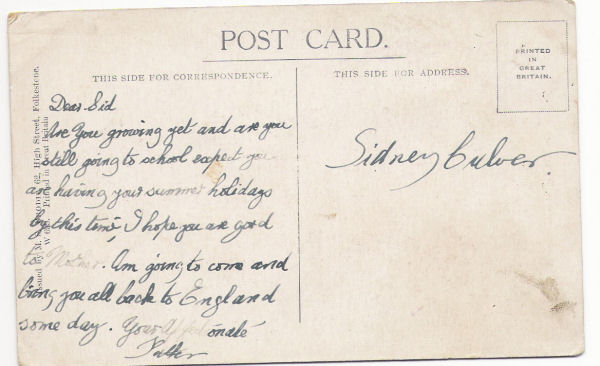 POST CARD.
THIS SIDE FOR CORRESPONDENCE.
THIS SIDE FOR ADDRESS.
PRINTED
IN
GREAT
BRITAIN.
Dear Sid
Are You growing yet and are you
still going to school expect you
are having your summer holidays
by this time, I hope you are good
to Mother. Am going to come and
bring you all back to England
some day. Your
Father
Sidney Culver
62, High Street, Folkestone.
Printed in Great Britain